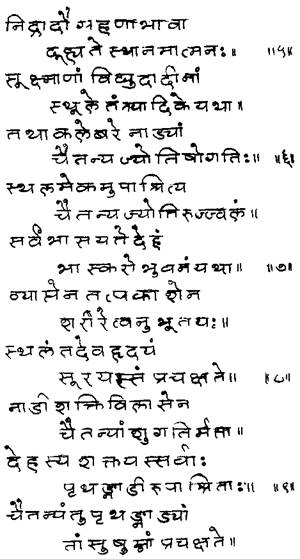 निद्रादौ ग्रहणाभावा
दूह्यते स्थानमात्मनः॥ ॥५॥
सूक्ष्माणां विद्युदादीनां
स्थूले तंत्र्यादिके यथा॥
तथा कलेबरे नाड्यां
चैतन्यज्योतिषोगतिः॥ ॥६॥
स्थलमेकमुपाश्रित्य
चैतन्यज्योतिरुज्ज्वलं॥
सर्वं भासयते देहं
भास्करो भुवनं यथा॥ ॥७॥
व्यासेन तत्प्रकाशेन
शरीरेत्वनुभूतयः॥
स्थलं तदेव हृदयं
सूरयस्तं प्रचक्षते॥ ॥८॥
नाडीशक्तिविलासेन
चैतन्यांशुगतिर्मता॥
देहस्य शक्तयस्सर्वाः
पृथङ्नाडीरुपाश्रिताः॥ ॥९॥
चैतन्यंतु पृथङ्नाड्यां
तां सुषुम्नां प्रचक्षते॥